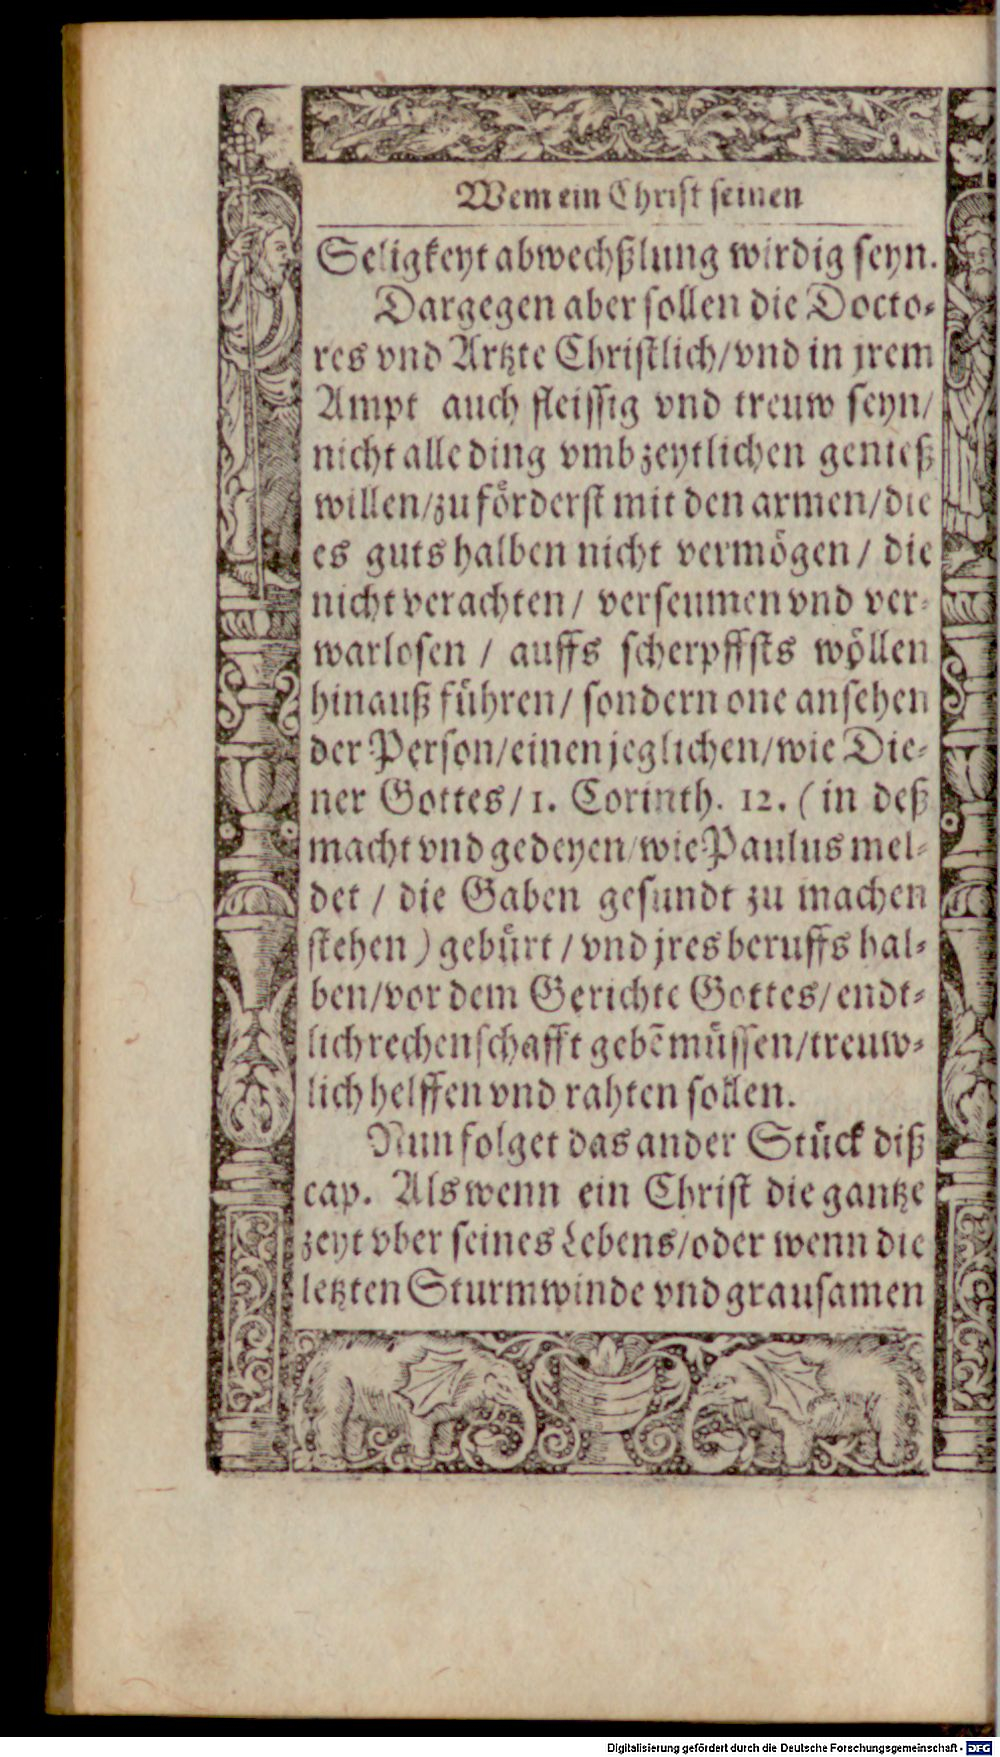 Wem ein Christ seinen
Seligkeyt abwechßlung wirdig seyn.
Dargegen aber sollen die Docto⸗
res vnd Artzte Christlich/vnd in jrem
Ampt auch fleissig vnd treuw seyn/
nicht alle ding vmb zeytlichen genieß
willen/zu förderst mit den armen/die
es guts halben nicht vermögen / die
nicht verachten/ verseumen vnd ver⸗
warlosen / auffs scherpffsts wöllen
hinauß führen/ sondern one ansehen
der Person/einen jeglichen/wie Die⸗
ner Gottes/1. Corinth. 12. (in deß
macht vnd gedeyen/wie Paulus mel⸗
det / die Gaben gesundt zu machen
stehen) gebürt / vnd jres beruffs hal⸗
ben/vor dem Gerichte Gottes/endt⸗
lich rechenschafft gebẽ müssen/treuw⸗
lich helffen vnd rahten sollen.
Nun folget das ander Stück diß
cap. Als wenn ein Christ die gantze
zeyt vber seines Lebens/oder wenn die
letzten Sturmwinde vnd grausamen
Digitalisierung gefördert durch die Deutsche Forschungsgemeinschaft - DFG